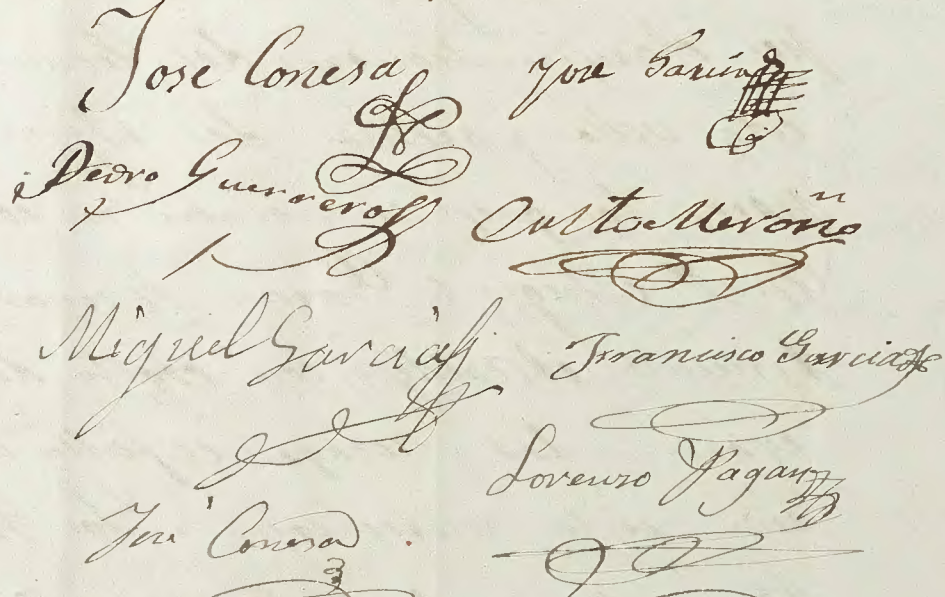 Jose Conesa
Jose Garcia
Pedro Guerrero
Meroño
Miguel Garcia
Francisco Garcia
Lorenzo Pagan
José Conesa